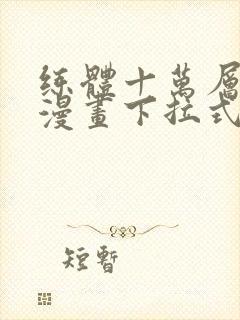 练體十萬層
漫畫下拉式
短暫